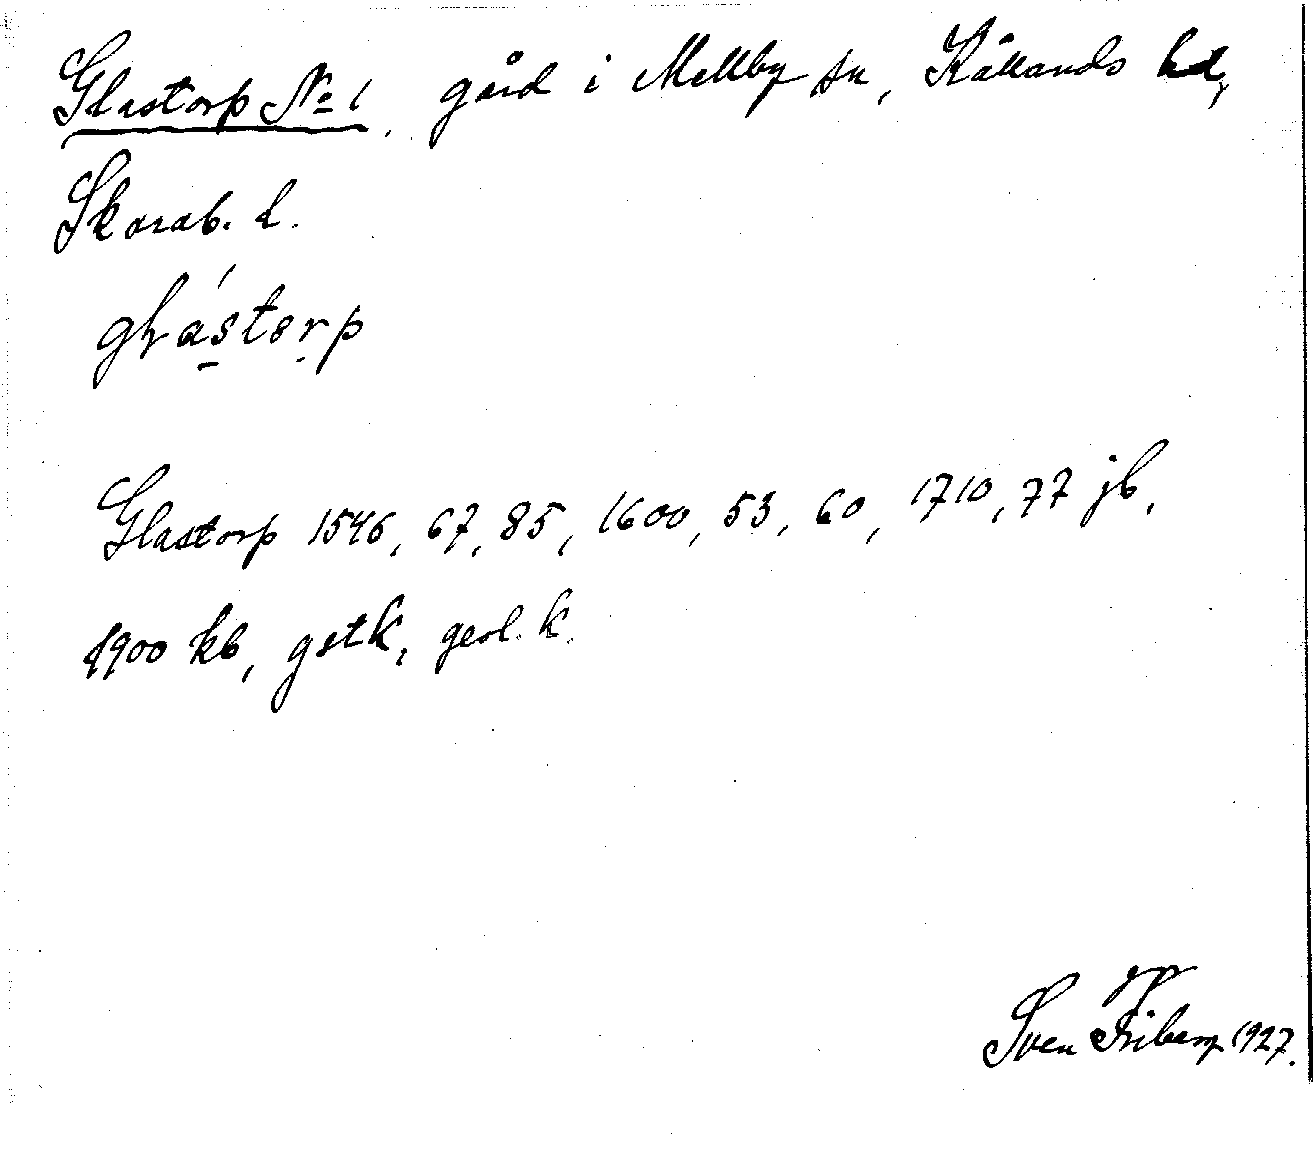 Glastorp No 1, gård i Mellby sn, Kållands hd,
Skarab. l.
Glastorp 1546, 67, 85, 1600, 53, 60, 1710, 77 jb,
1900 kb, gstk, geol. k.
Sven Friberg 1927.